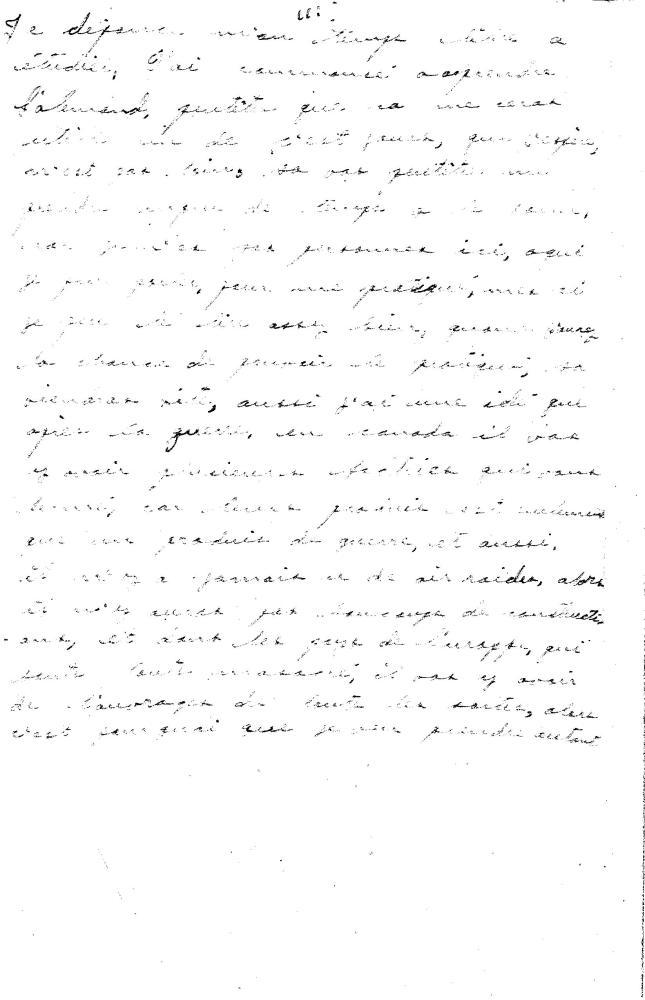 III
Je dépence mon temps libre a
étudier, J'ai commencé a apprendre
l'alemand, peutête que sa me ceras
utile un de c'est jours, que j'espère,
n'est pas loins, sa vas peutête me
prendre un peu de temps a le
car y a personnes ici, a qui
je peu parler, pour me pratiqué, mes si
je peu le lire assez bien, quand j'aurez
la chance de pouvoir le pratiqué, sa
viendras vite, aussi j'ai une idé que
après la guerre, en canada il vas
y avoir plusieures qui vons
fermé, car leurs produits est seulement
que un produits de guerre, et aussi,
il n'y a jamais u de air raides, alors
il n'y auras pas beaucoups de constructi-
ons, et dans les pays de l'europpe, qui
sonts touts massacré, il vas y avoir
de l'ouvrages de toute les sortes, alors
c'est pourquoi que je veu prendre autant